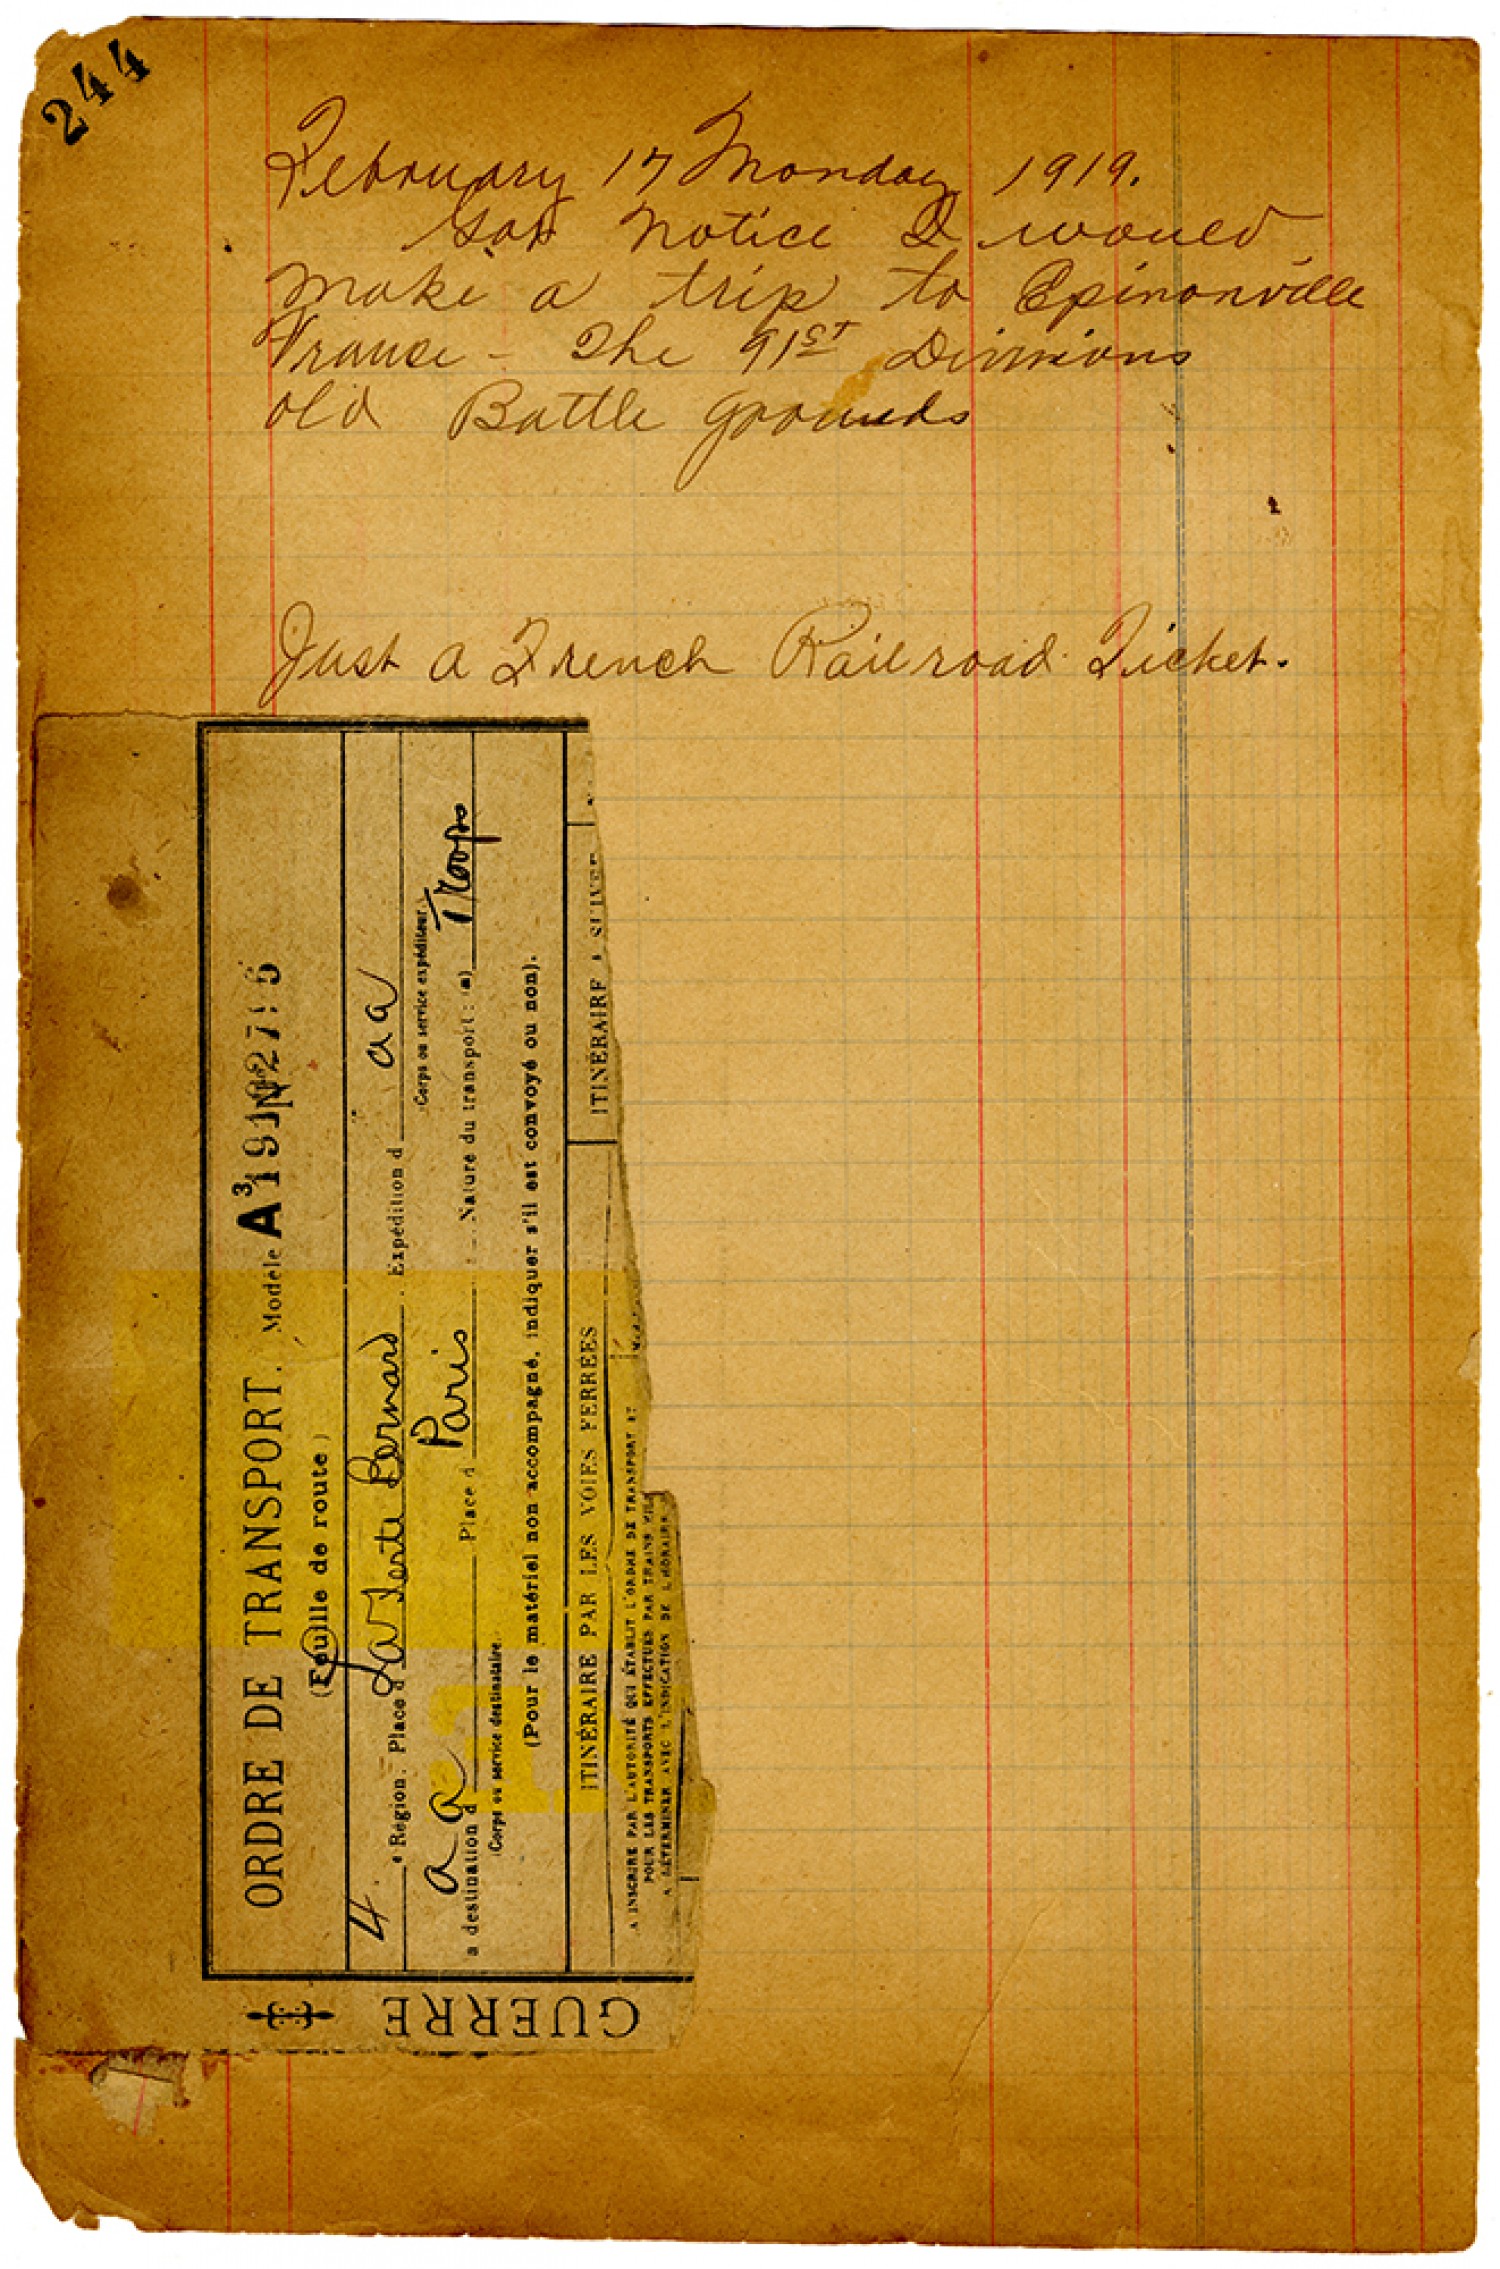 244
February 17 Monday 1919.
Got Notice I would
make a trip to Epinonville
France - The 91st Divisions
old Battle grounds
Just a French Railroad Ticket.
ORDRE DE TRANSPORT. Modèle A³
(Feuille de route)
4 e Région. Place d La Ferte Bernard. Expédition d a a
(Corps ou service expéditeur)
à destination d a a Place d Paris Nature du transport : (a) Troops
(Corps ou service destinataire.
(Pour le matériel non accompagné, indiquer s'il est convoyé ou non).
ITINÉRAIRE PAR LES VOIES FERRÉES
ITINÉRAIRE A SUIVRE
A INSCRIRE PAR L'AUTORITÉ QUI ÉTABLIT L'ORDRE DE TRANSPORT ET
POUR LES TRANSPORTS EFFECTUÉS PAR TRAINS
A DÉTERMINER AVEC L'INDICATION DE L'HORAIRE
GUERRE